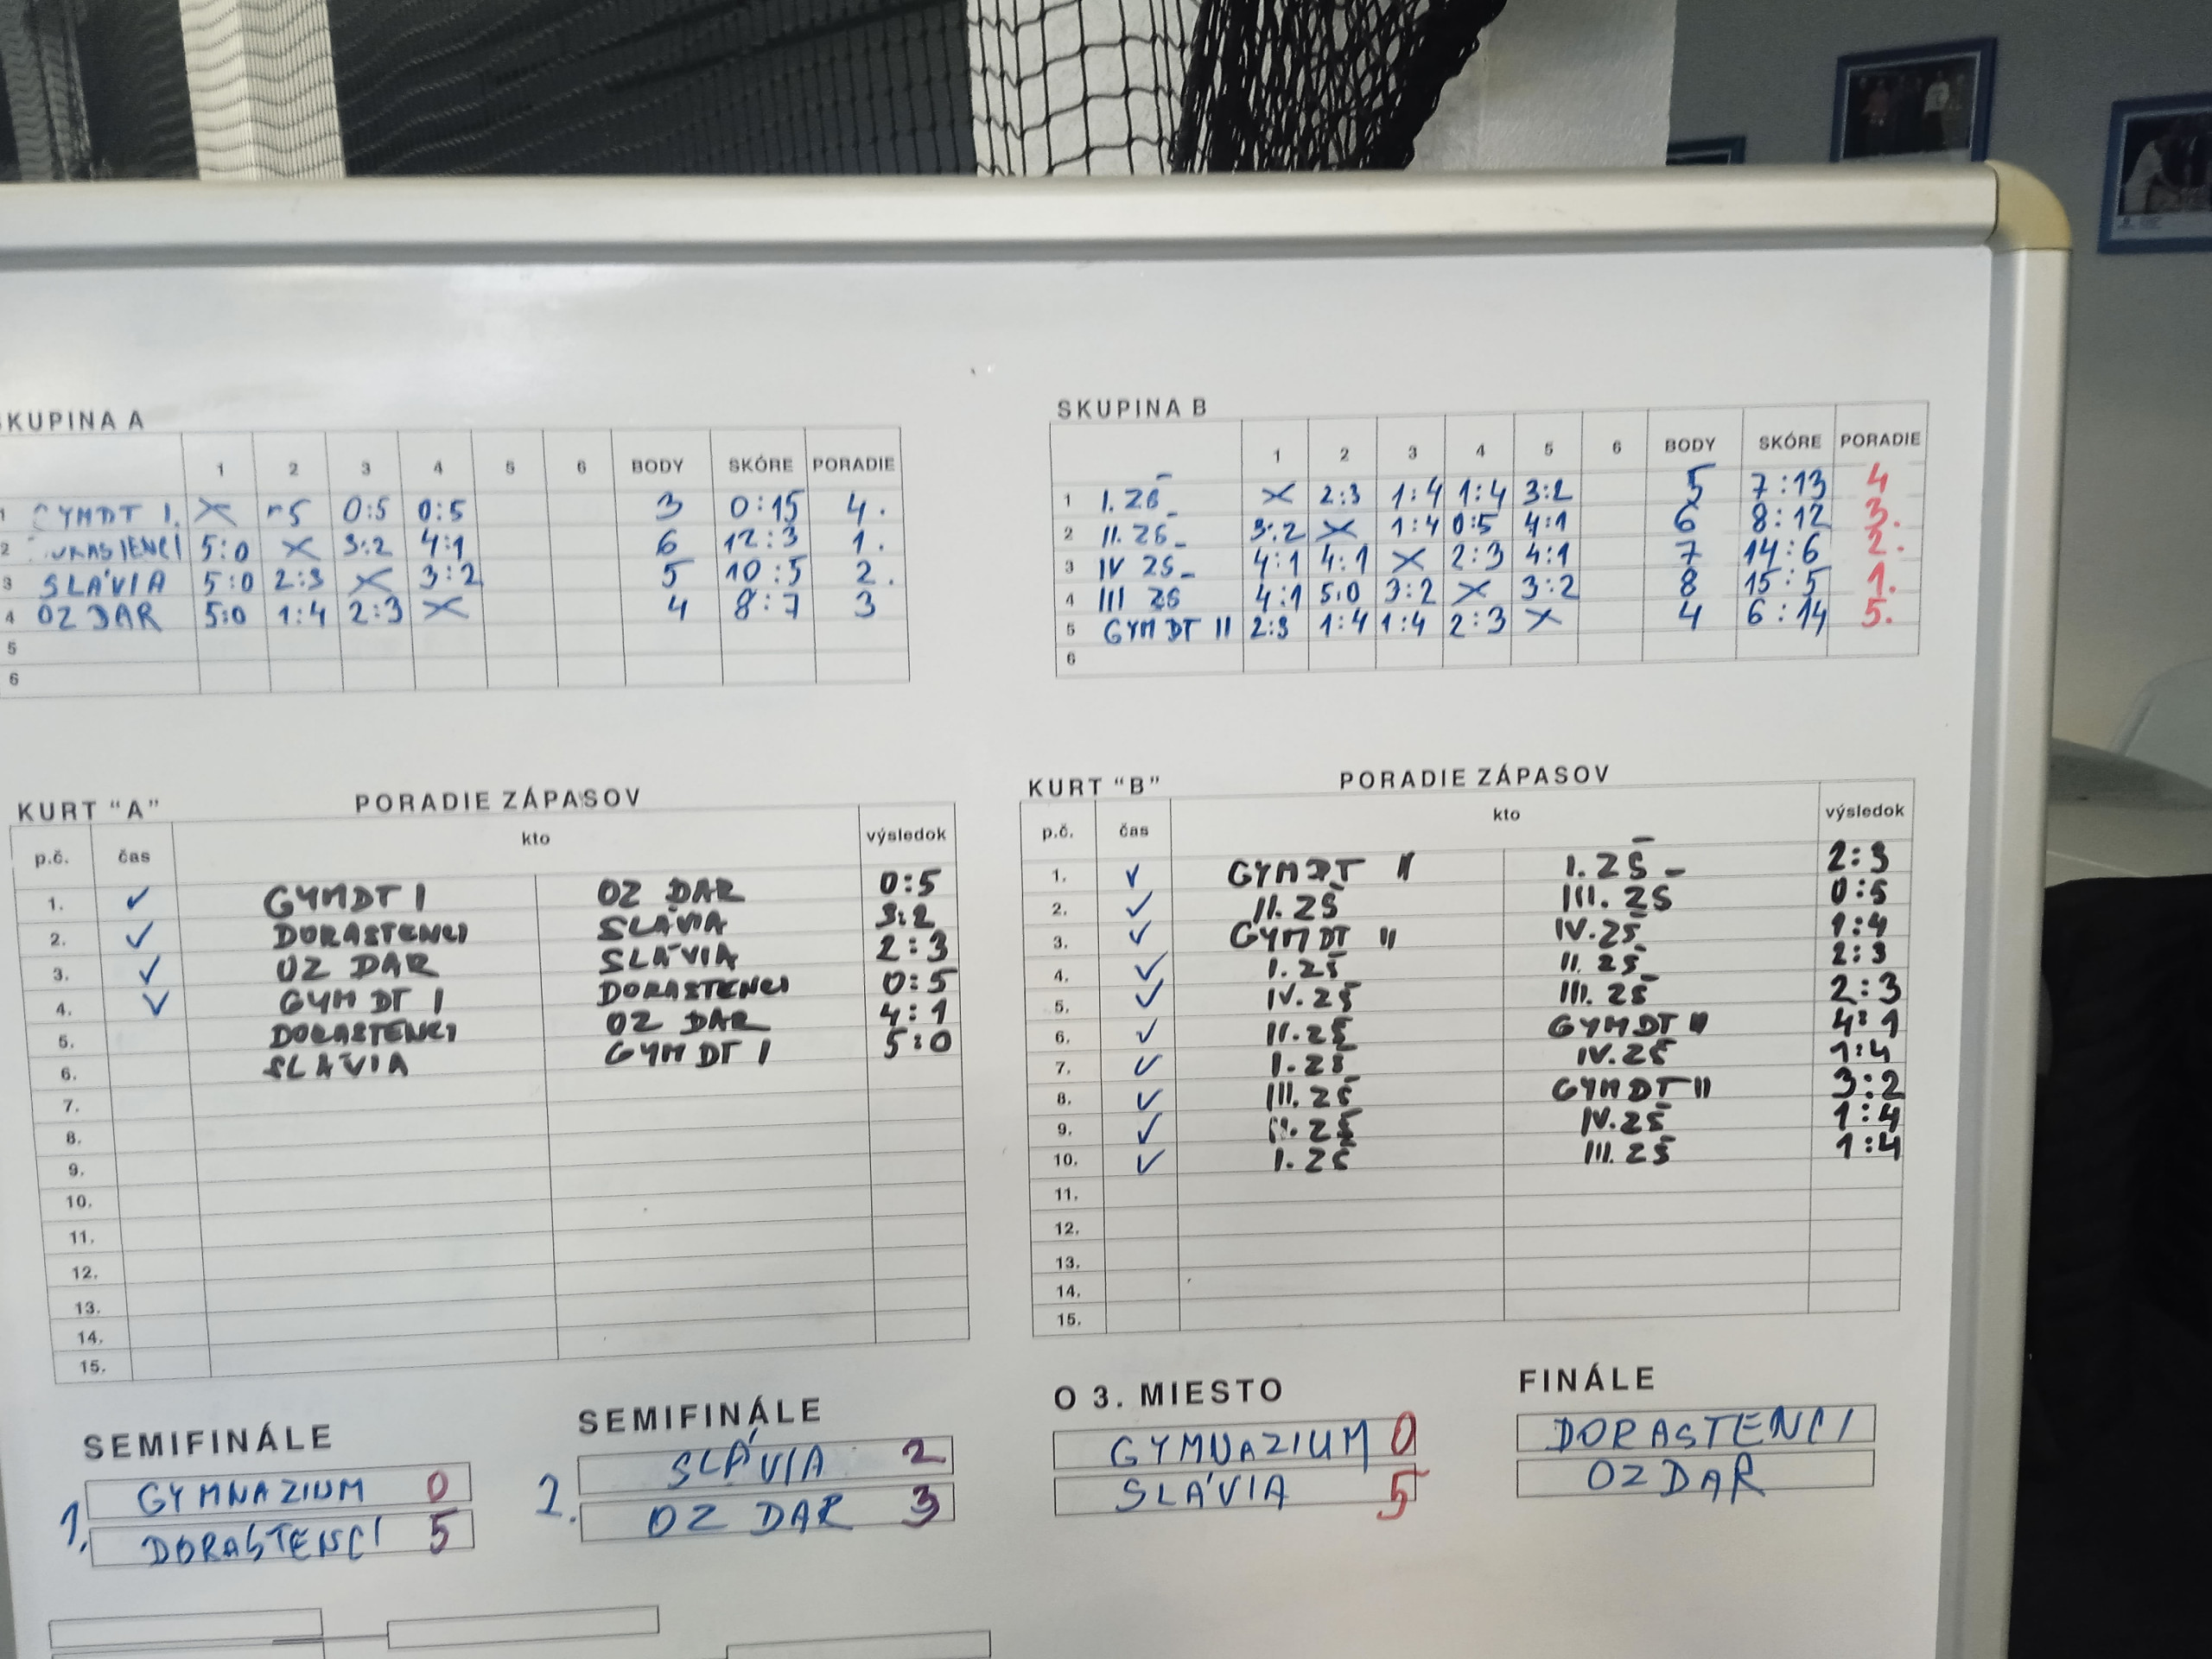 SKUPINA A
1 2 3 4 5 6 BODY SKÓRE PORADIE
1 GYMDT I. X 0:5 0:5 3 0:15 4.
2 5:0 X 3:2 4:1 6 12:3 1.
3 SLÁVIA 5:0 2:3 X 3:2 5 10:5 2.
4 OZ DAR 5:0 1:4 2:3 X 4 8:7 3
5
6
SKUPINA B
1 2 3 4 5 6 BODY SKÓRE PORADIE
1 I. ZŠ X 2:3 1:4 1:4 3:2 5 7:13 4
2 II. ZS 3:2 X 1:4 0:5 4:1 6 8:12 3.
3 IV ZS 4:1 4:1 X 2:3 4:1 7 14:6 2.
4 III ZS 4:1 5:0 3:2 X 3:2 8 15:5 1.
5 GYM DT II 2:3 1:4 1:4 2:3 X 4 6:14 5.
6
KURT "A" PORADIE ZÁPASOV
p.č. čas kto výsledok
1. ✓ GYMDT I OZ DAR 0:5
2. ✓ DORASTENCI SLÁVIA 3:2
3. ✓ OZ DAR SLÁVIA 2:3
4. ✓ GYM DT I DORASTENCI 0:5
5. DORASTENCI OZ DAR 4:1
6. SLÁVIA GYM DT I 5:0
7.
8.
9.
10.
11.
12.
13.
14.
15.
KURT "B" PORADIE ZÁPASOV
p.č. čas kto výsledok
1. ✓ GYMDT II I. ZŠ 2:3
2. ✓ II. ZŠ III. ZS 0:5
3. ✓ GYMDT II IV. ZŠ 1:4
4. ✓ I. ZŠ II. ZŠ 2:3
5. ✓ IV. ZŠ III. ZŠ 2:3
6. ✓ II. ZŠ GYMDT II 4:1
7. ✓ I. ZŠ IV. ZŠ 1:4
8. ✓ III. ZŠ GYMDT II 3:2
9. ✓ II. ZŠ IV. ZŠ 1:4
10. ✓ I. ZŠ III. ZŠ 1:4
11.
12.
13.
14.
15.
SEMIFINÁLE
1. GYMNAZIUM 0
DORASTENCI 5
SEMIFINÁLE
2. SLÁVIA 2
OZ DAR 3
O 3. MIESTO
GYMNAZIUM 0
SLÁVIA 5
FINÁLE
DORASTENCI
OZ DAR